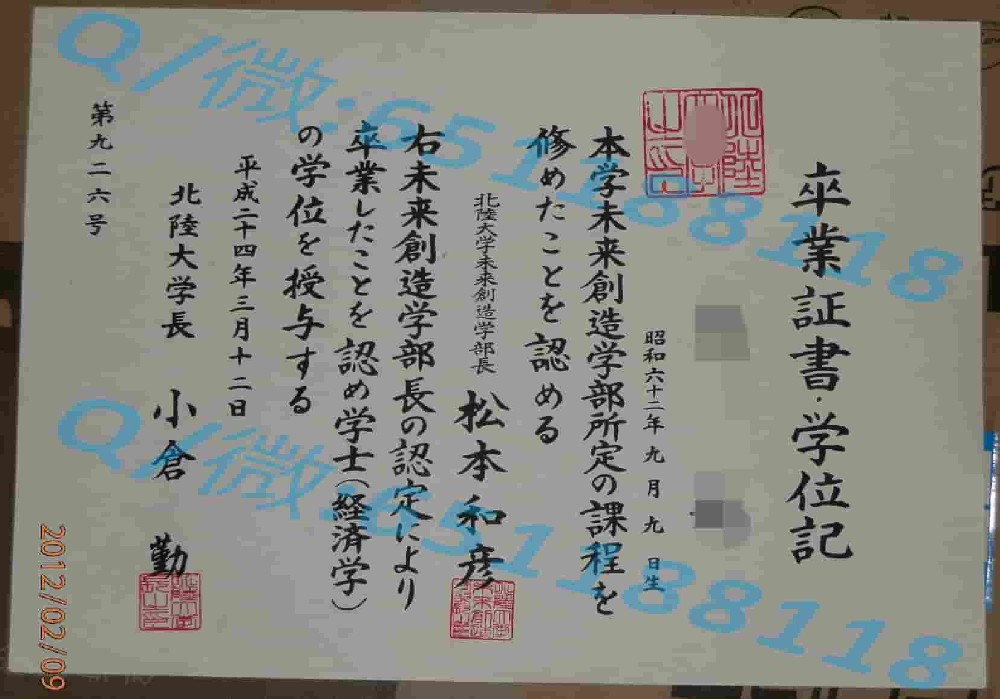 卒業証書・学位記
昭和六十二年九月九日生
本学未来創造学部所定の課程を
修めたことを認める
北陸大学未来創造学部長
松本和彦
右未来創造学部長の認定により
卒業したことを認め学士(経済学)
の学位を授与する
平成二十四年三月十二日
北陸大学長
小倉 勤
第九二六号
Q/微:651188118
Q/微:651188118
2012/02/09